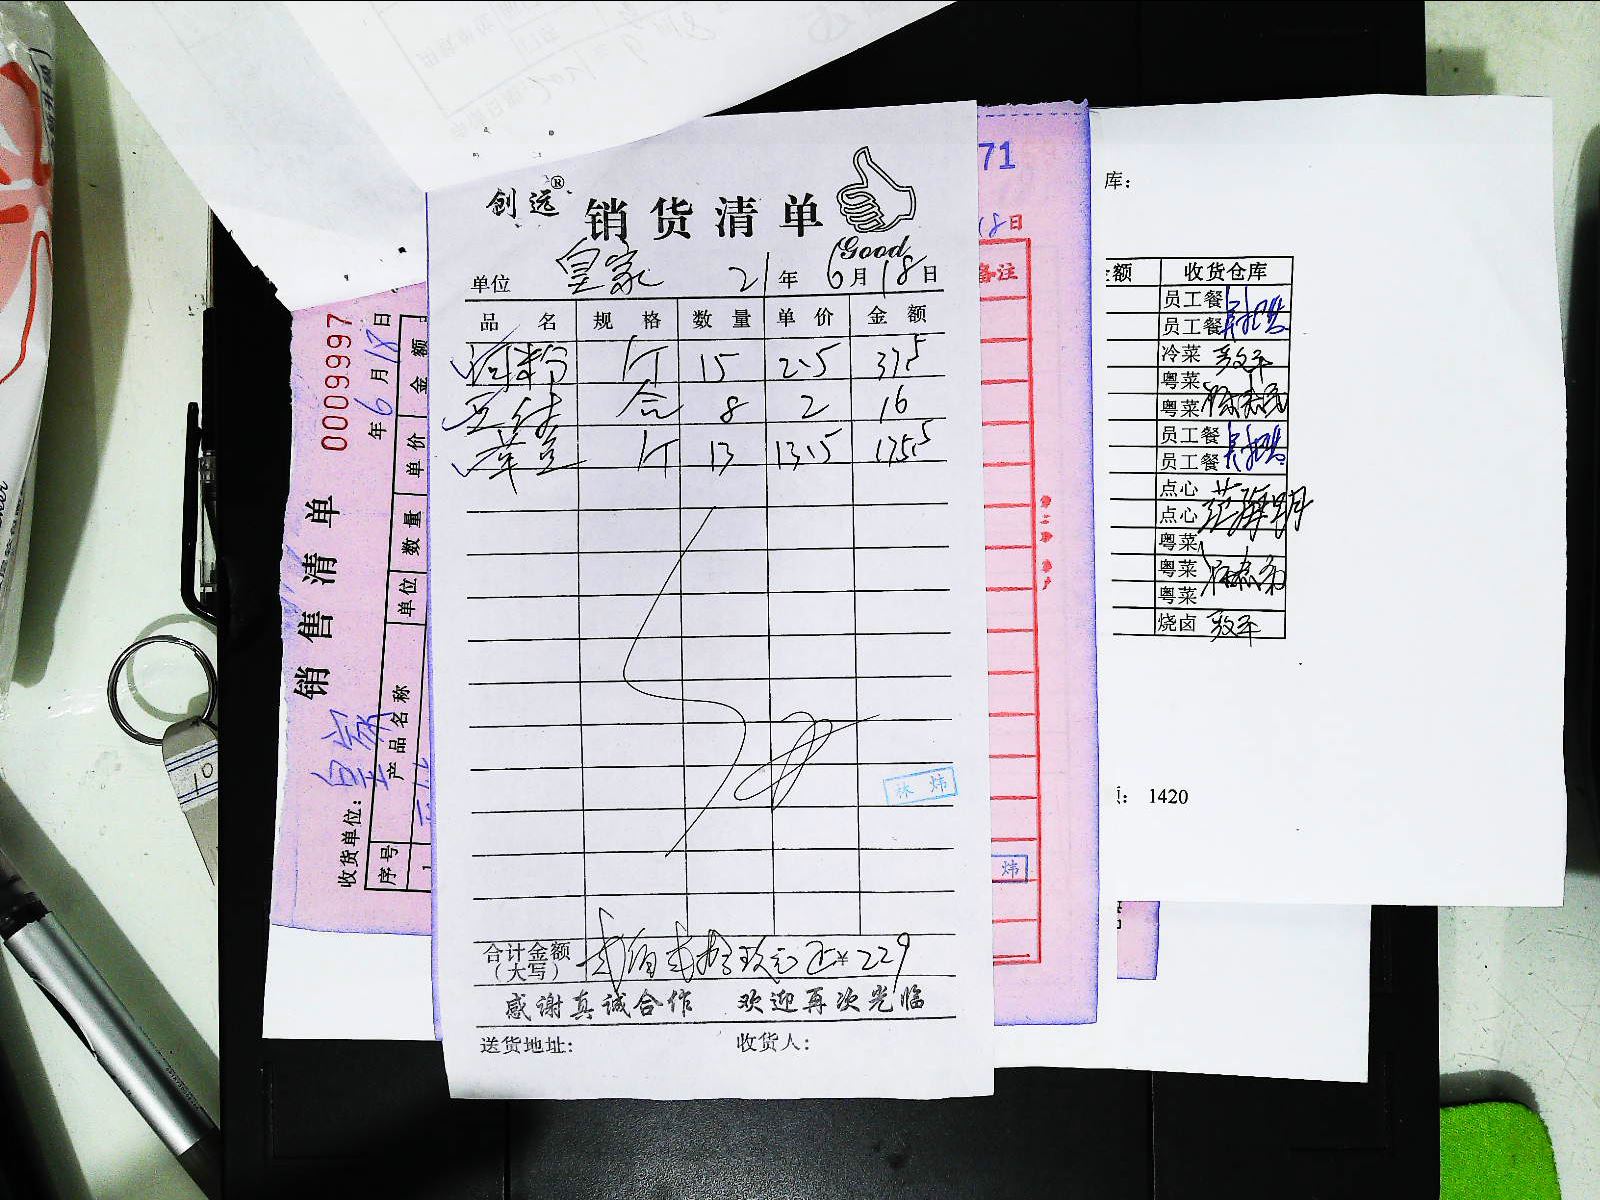 创远®
销货清单
Good
单位 皇家 21年6月18日
品名 规格 数量 单价 金额
河粉 斤 15 2.5 37.5
合 8 2 16
斤 13 13.5 175.5
林炜
合计金额(大写) 贰佰贰拾玖元正 ¥229
感谢真诚合作 欢迎再次光临
送货地址: 收货人:
0009997
年6月18日
销售清单
收货单位: 皇家
序号 产品名称 单位 数量 单价 金额
1
71
18日
备注
炜
库:
额 收货仓库
员工餐
员工餐
冷菜
粤菜
粤菜
员工餐
员工餐
点心
点心
粤菜
粤菜
粤菜
烧卤
: 1420
10